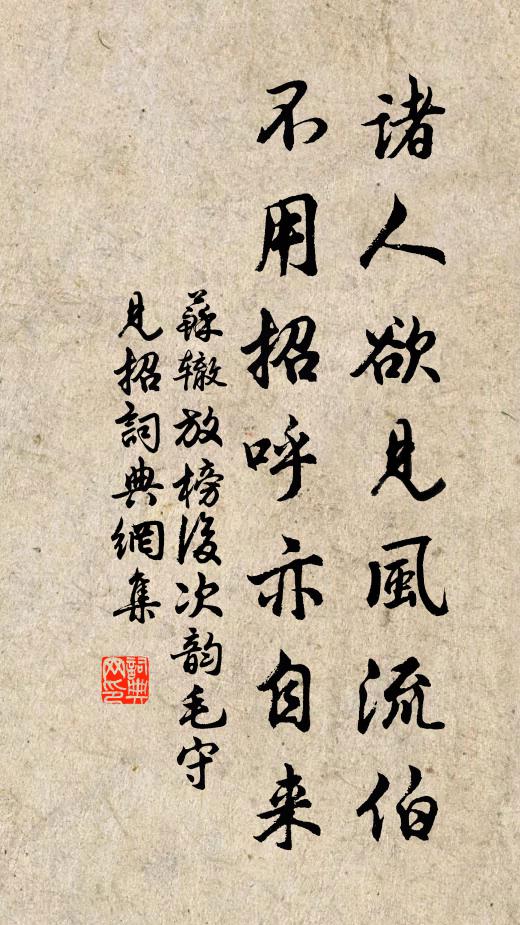 諸人欲見風流伯
不用招呼亦自来
蘇辙放榜後次韵毛守
見招詞典網集
詞典網印